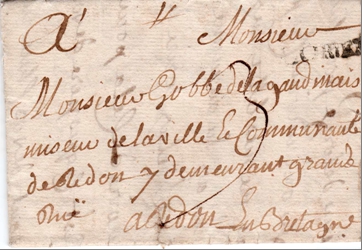 A Monsieur
Monsieur Gobbé de la gaudmais
miseur de la ville & Communauté
de Redon y demeurant grande
Rüe
a Redon En Bretagne